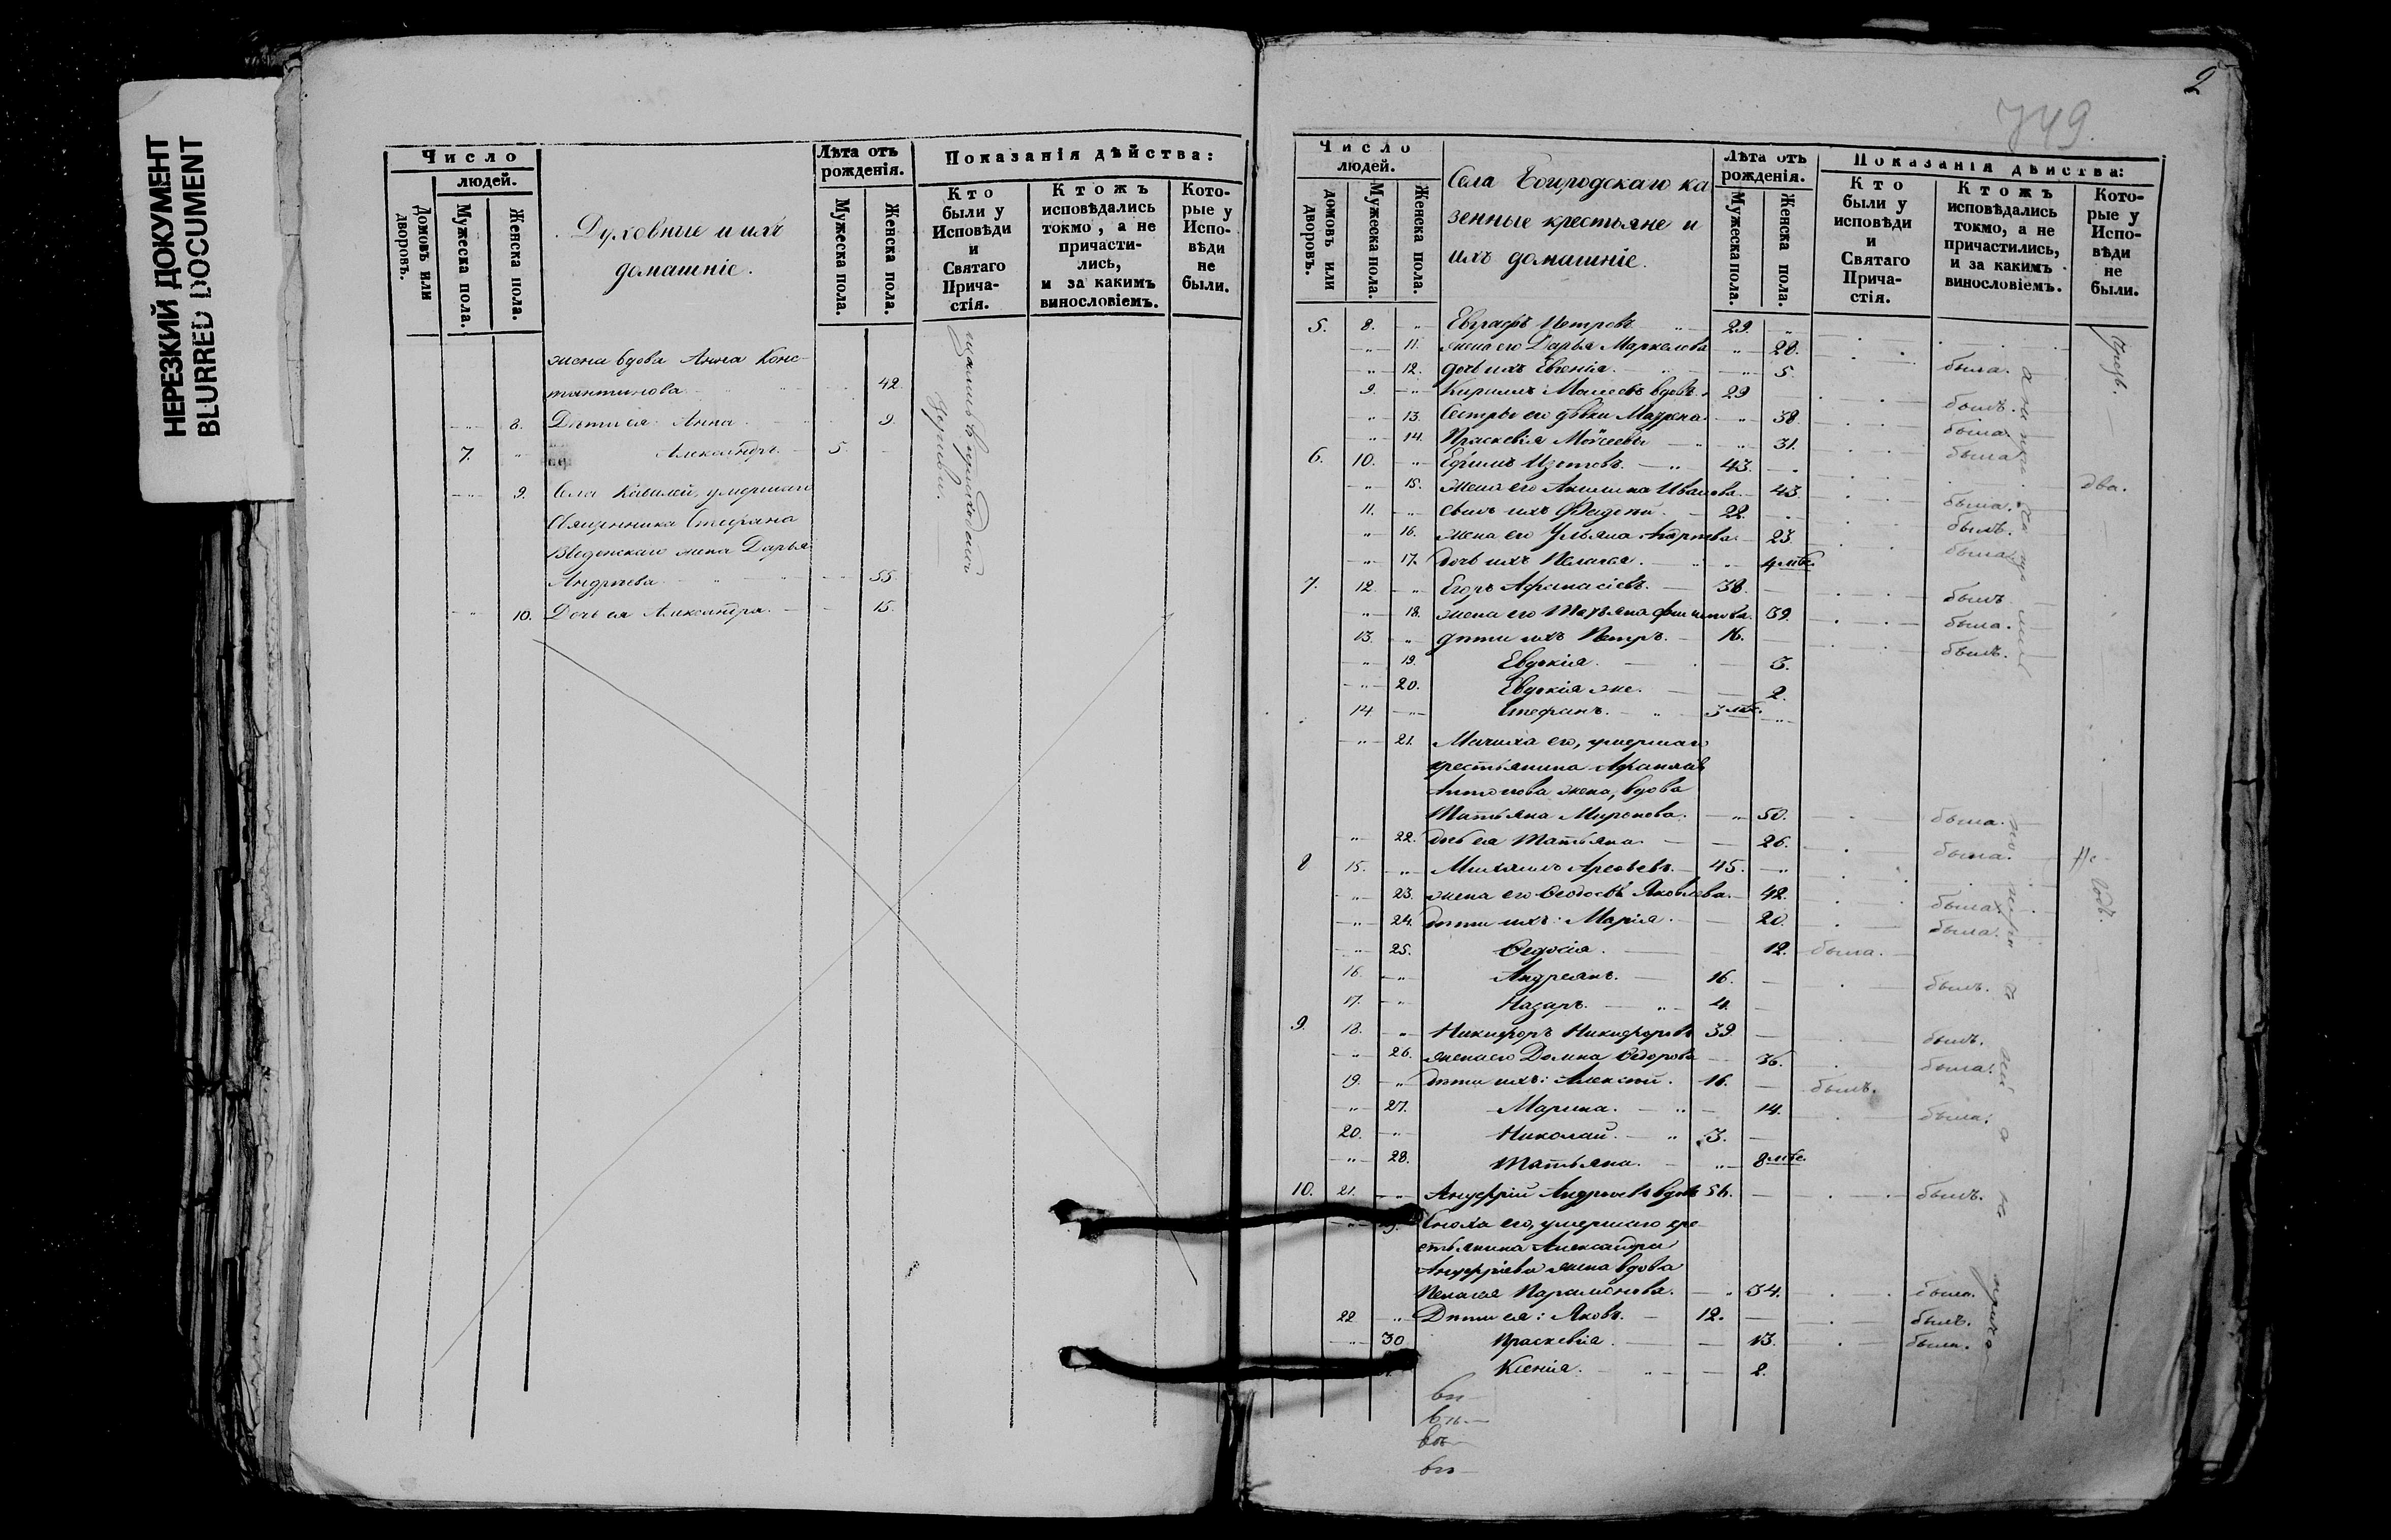 НЕРЕЗКИЙ ДОКУМЕНТ
BLURRED DOCUMENT
Число
людей.
Домовъ или дворовъ.
Мужеска пола.
Женска пола.
Духовные и ихъ
домашніе.
Лѣта отъ рожденія.
Мужеска пола.
Женска пола.
Показанія дѣйства:
Кто были у Исповѣди и Святаго Причастія.
Ктожъ исповѣдались токмо, а не причастились, и за какимъ винословіемъ.
Которые у Исповѣди не были.
жена вдова Анна Конс-
тантинова 42
8. Дѣти ея: Анна 9
7. Александръ 5
9. Села умершаго
Священника Стефана
Введенскаго жена Дарья
Андреева 55
10. Дочь ея Александра. 15.
2
749.
Число
людей.
домовъ или дворовъ.
Мужеска пола.
Женска пола.
Села Богородскаго ка
зенные крестьяне и
ихъ домашніе.
Лѣта отъ рожденія.
Мужеска пола.
Женска пола.
Показанія дѣйства:
Кто были у исповѣди и Святаго Причастія.
Ктожъ исповѣдались токмо, а не причастились, и за какимъ винословіемъ.
Которые у Исповѣди не были.
5. 8. Евграфъ Петровъ 29.
11. жена его Дарья Маркелова 28.
12. дочь ихъ Евгенія. 5. была.
9. Кириллъ Моисеевъ вдовъ 29 былъ.
13. Сестры его дѣвки Матрена 38. была.
14. Праскевія Моисеевы 31. была
6. 10. Ефимъ Изотовъ. 43.
15. жена его Акилина Иванова 43. была. два.
11. сынъ ихъ Фадей. 22. былъ.
16. жена его Ульяна 23. была
17. дочь ихъ Пелагея. 4 мѣс.
7. 12. Егоръ Афанасіевъ. 38. былъ
18. жена его Татьяна Филипова. 39. была.
13. дѣти ихъ Петръ. 16. былъ.
19. Евдокія. 5.
20. Евдокія же. 2.
14. Стефанъ. 3 мѣс.
21. Мачиха его, умершаго
крестьянина
Антонова жена, вдова
Татьяна Миронова. 50. была.
22. дочь ея Татьяна 26. была.
8 15. Михаилъ Арефьевъ. 45.
23. жена его Яковлева. 42. была
24. дѣти ихъ: Марія. 20. была.
25. Ѳедосія. 12. была.
16. Андреянъ. 16. былъ.
17. Назаръ. 4.
9. 18. Никифоръ Никифоровъ 39 былъ.
26. жена его Домна Ѳедорова 36. была.
19. дѣти ихъ: Алексѣй. 16. былъ.
27. Марина. 14. была.
20. Николай. 3.
28. Татьяна. 8 мѣс.
10. 21. Андреевъ вдовъ 56. былъ.
Сноха его, умершаго кре-
стьянина Александра
жена вдова
Пелагея Парамонова. 34. была.
22 Дѣти ея: Яковъ. 12. былъ.
30 Праскевія. 13. была.
Ксенія. 2.